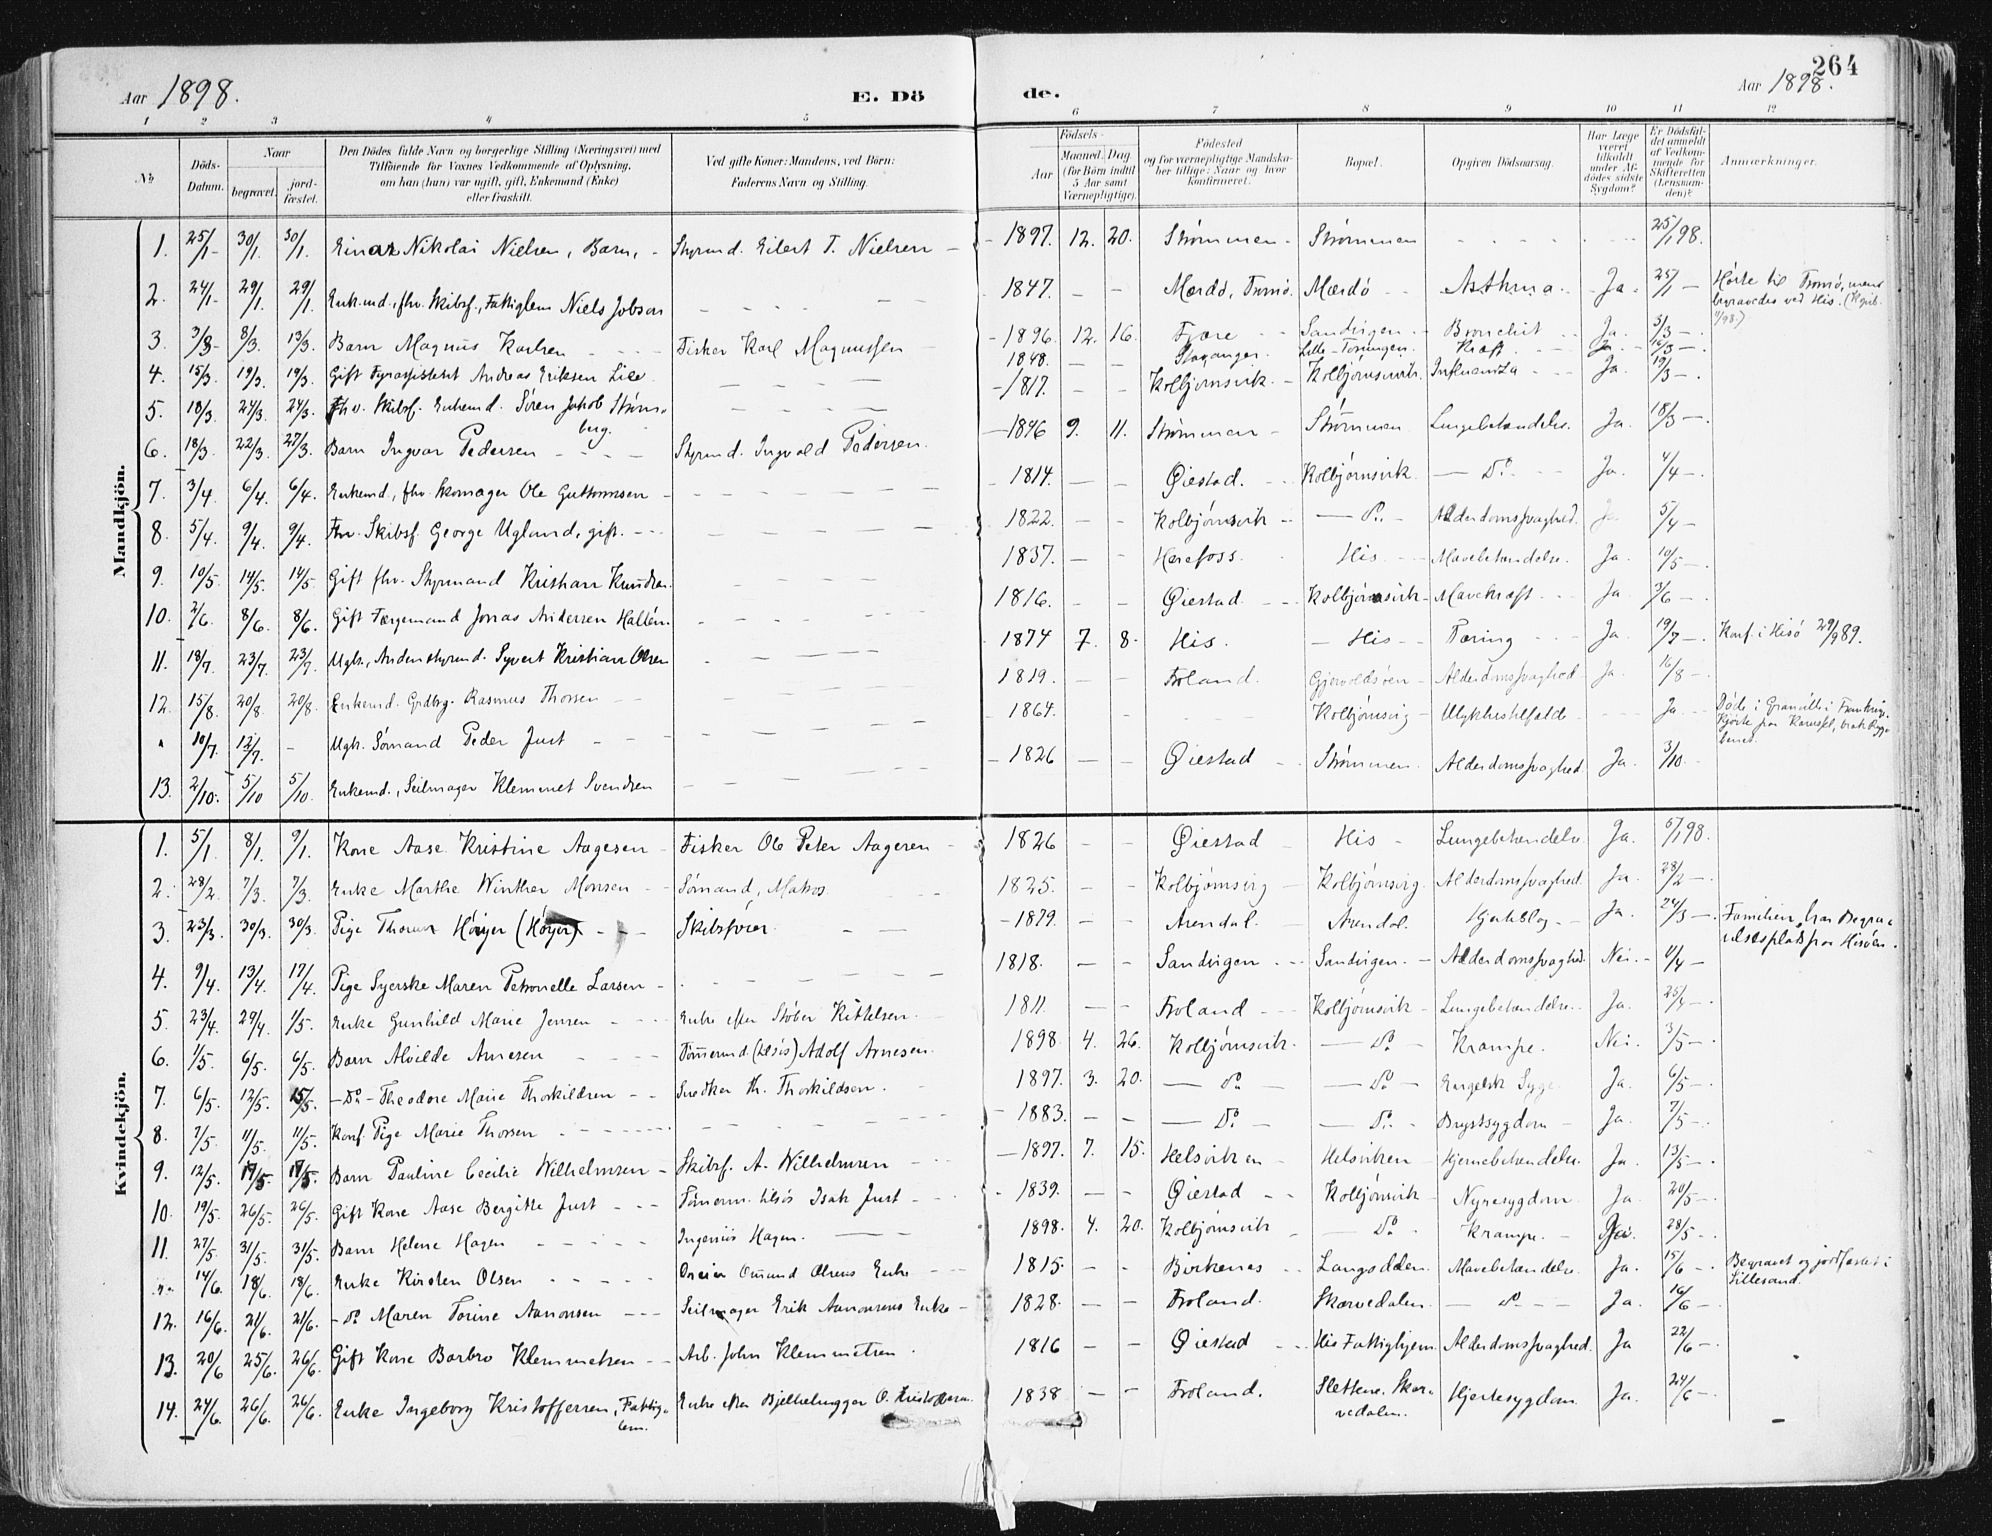 264
Aar 1898.
E. Dö
de.
Aar 1898.
1 2 3 4 5 6 7 8 9 10 11 12
No
Döds-Datum.
Naar
begravet.
jord-fæstet.
Den Dödes fulde Navn og borgerlige Stilling (Næringsvei) med
Tilföiende for Voxnes Vedkommende af Oplysning,
om han (hun) var ugift, gift, Enkemand (Enke)
eller fraskilt.
Ved gifte Koner: Mandens, ved Börn:
Faderens Navn og Stilling.
Födsels-
Aar
Maaned. Dag.
(for Börn indtil
5 Aar samt
Værnepligtige).
Födested
og for værnepligtige Mandska-
ber tillige: Naar og hvor
konfirmeret.
Bopæl.
Opgiven Dödsaarsag.
Har Læge
været
tilkaldt
under Af-
dödes sidste
Sygdom?
Er Dödsfal-
det anmeldt
af Vedkom-
mende for
Skifteretten
(Lensman-
den)?
Anmærkninger.
Mandkjön.
1. 25/1 30/1. 30/1. Einar Nikolai Nielsen, Barn, Styrmd. Eilert T. Nielsen 1897. 12. 20. Strømmen Strømmen 25/1 98.
2. 24/1 29/1. 29/1. Enkmd., fhv. Skibsf., Fattiglem Niels Jobsen 1847. Mærdø, Tromø. Mærdø Asthma Ja. 25/1 Hørte til Tromø, mens
begravedes ved His.
3. 3/3 8/3. 13/3. Barn Magnus Karlsen Fisker Karl Magnussen 1896. 12. 16. Fjære Sandvigen Bronchit Ja. 5/3
4. 15/3. 19/3. 19/3. Gift Fyrassistent Andreas Eriksen Lie 1848. Stavanger. Lille-Torungen. Kræft Ja. 16/3
5. 18/3. 24/3. 24/3. Fhv. Skibsf. Enkemd. Søren Jakob Strøm-
berg. 1817. Kolbjørnsvik. Kolbjørnsvik. Influentza Ja. 19/3
6. 18/3. 22/3. 27/3. Barn Ingvar Pedersen Styrmd. Ingvald Pedersen. 1896 9. 11. Strømmen Strømmen Lungebetændelse. Ja. 18/3
7. 3/4. 6/4. 6/4. Enkemd., fhv. Skomager Ole Guttormsen 1814. Øiestad. Kolbjørnsvik. Do Ja. 4/4
8. 5/4. 9/4. 9/4. Fhv. Skibsf. George Ugland, gift. 1822. Kolbjørnsvik Do Alderdomssvaghed. Ja 5/4
9. 10/5. 14/5. 14/5. Gift fhv. Styrmand Kristian Knudsen. 1837. Herefoss. His Mavebetændelse. Ja. 10/5
10. 2/6. 8/6. 8/6. Gift Færgemand Jonas Andersen Hallén. 1816. Øiestad. Kolbjørnsvik Mavekræft Ja 3/6
11. 18/7. 23/7. 23/7. Ugk., Andenstyrmd. Syvert Kristian Olsen 1874 7. 8. His. His Tæring Ja. 19/7 Konf. i Hisø 29/9 89.
12. 15/8. 20/8. 20/8. Enkemd. Grdbrg. Rasmus Thorsen 1819. Froland. Gjervoldsøen Alderdomssvaghed Ja. 16/8
" 10/7. 12/7. Ugk. Sømand Peder Just 1864. Kolbjørnsvig Ulykkestilfælde Ja Døde i Granville i Frankrig.
13. 2/10. 5/10 5/10. Enkemd., Seilmager Klemmet Svendsen 1826 Øiestad Strømmen. Alderdomssvaghed. Ja. 3/10.
Kvindekjön.
1. 5/1 8/1. 9/1. Kone Aase Kristine Aagesen Fisker Ole Peter Aagesen 1826 Øiestad His Lungebetændelse. Ja. 5/1 98.
2. 28/2 7/3. 7/3. Enke Marthe Winther Monsen Sømand, Matros. 1825. Kolbjørnsvig Kolbjørnsvig. Alderdomssvaghed. Ja. 28/2
3. 23/3. 30/3. 30/3. Pige Thorun Höyer (Höyer) Skibsfører 1879. Arendal. Arendal. Hjerteslag Ja. 24/3 Familien har Begra-
velsesplads paa Hisøen.
4. 9/4. 13/4. 17/4. Pige Syerske Maren Petronelle Larsen 1818. Sandvigen Sandvigen. Alderdomssvaghed. Nei. 11/4
5. 23/4. 29/4. 1/5. Enke Gunhild Marie Jensen Enke efter Støber Kittelsen. 1811. Froland Kolbjørnsvik Lungebetændelse. Ja. 25/4
6. 1/5. 6/5. 6/5. Barn Alvilde Arnesen Tømmermd. (Hisøs) Adolf Arnesen. 1898 4. 26. Kolbjørnsvik. Do Krampe. Nei. 3/5
7. 6/5. 12/5. 15/5. Do Theodore Marie Thorkildsen Snedker Th. Thorkildsen. 1897. 3. 20. Do Do Engelsk Syge Ja. 6/5
8. 7/5. 11/5. 11/5. Konf. Pige Marie Thorsen 1883. Do Do. Brystsygdom Ja. 7/5
9. 12/5. 17/5. 17/5. Barn Pauline Cecilie Wilhelmsen Skibsf. A. Wilhelmsen 1897. 7. 15. Helsviken Helsviken Hjernebetændelse. Ja. 13/5
10. 19/5. 26/5. 26/5. Gift Kone Aase Bergitte Just Tømerm. Isak Just 1839. Øiestad Kolbjørnsvik Nyresygdom Ja. 20/5
11. 27/5. 31/5. 31/5. Barn Helene Hagen Ingeniör Hagen. 1898. 4. 20. Kolbjørnsvik Do Krampe. 28/5
14/6. 18/6. 18/6. Enke Kirsten Olsen Omund Olsens Enke 1815. Birkenes Langsdalen. Mavebetændelse. Ja. 15/6 Begravet og jordfæstet i
Lillesand.
12. 16/6. 21/6. 21/6. Do Maren Torine Aanonsen Seilmager Erik Aanonsens Enke 1828. Froland. Skarvedalen. Do Ja. 16/6
13. 20/6 25/6. 26/6. Gift Kone Barbro Klemmetsen Arb. John Klemmetsen. 1816 Øiestad His Fattighjem. Alderdomssvaghed. Ja 22/6
14. 24/6. 26/6. 26/6. Enke Ingeborg Kristoffersen, Fattig-
lem. Enke efter Bjelkehugger O. Kristoffersen. 1838 Froland. Slettene. Skar-
vedalen. Hjertesygdom. Ja. 24/6